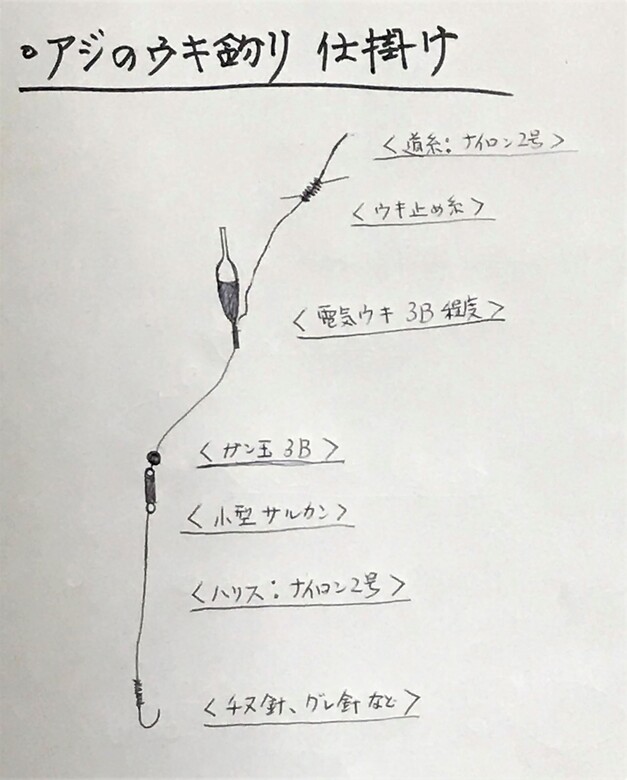 。アジのウキ釣り 仕掛け
<道糸:ナイロン2号>
<ウキ止め糸>
<電気ウキ 3B 程度>
<ガン玉 3B>
<小型サルカン>
<ハリス:ナイロン2号>
<チヌ針、グレ針など>